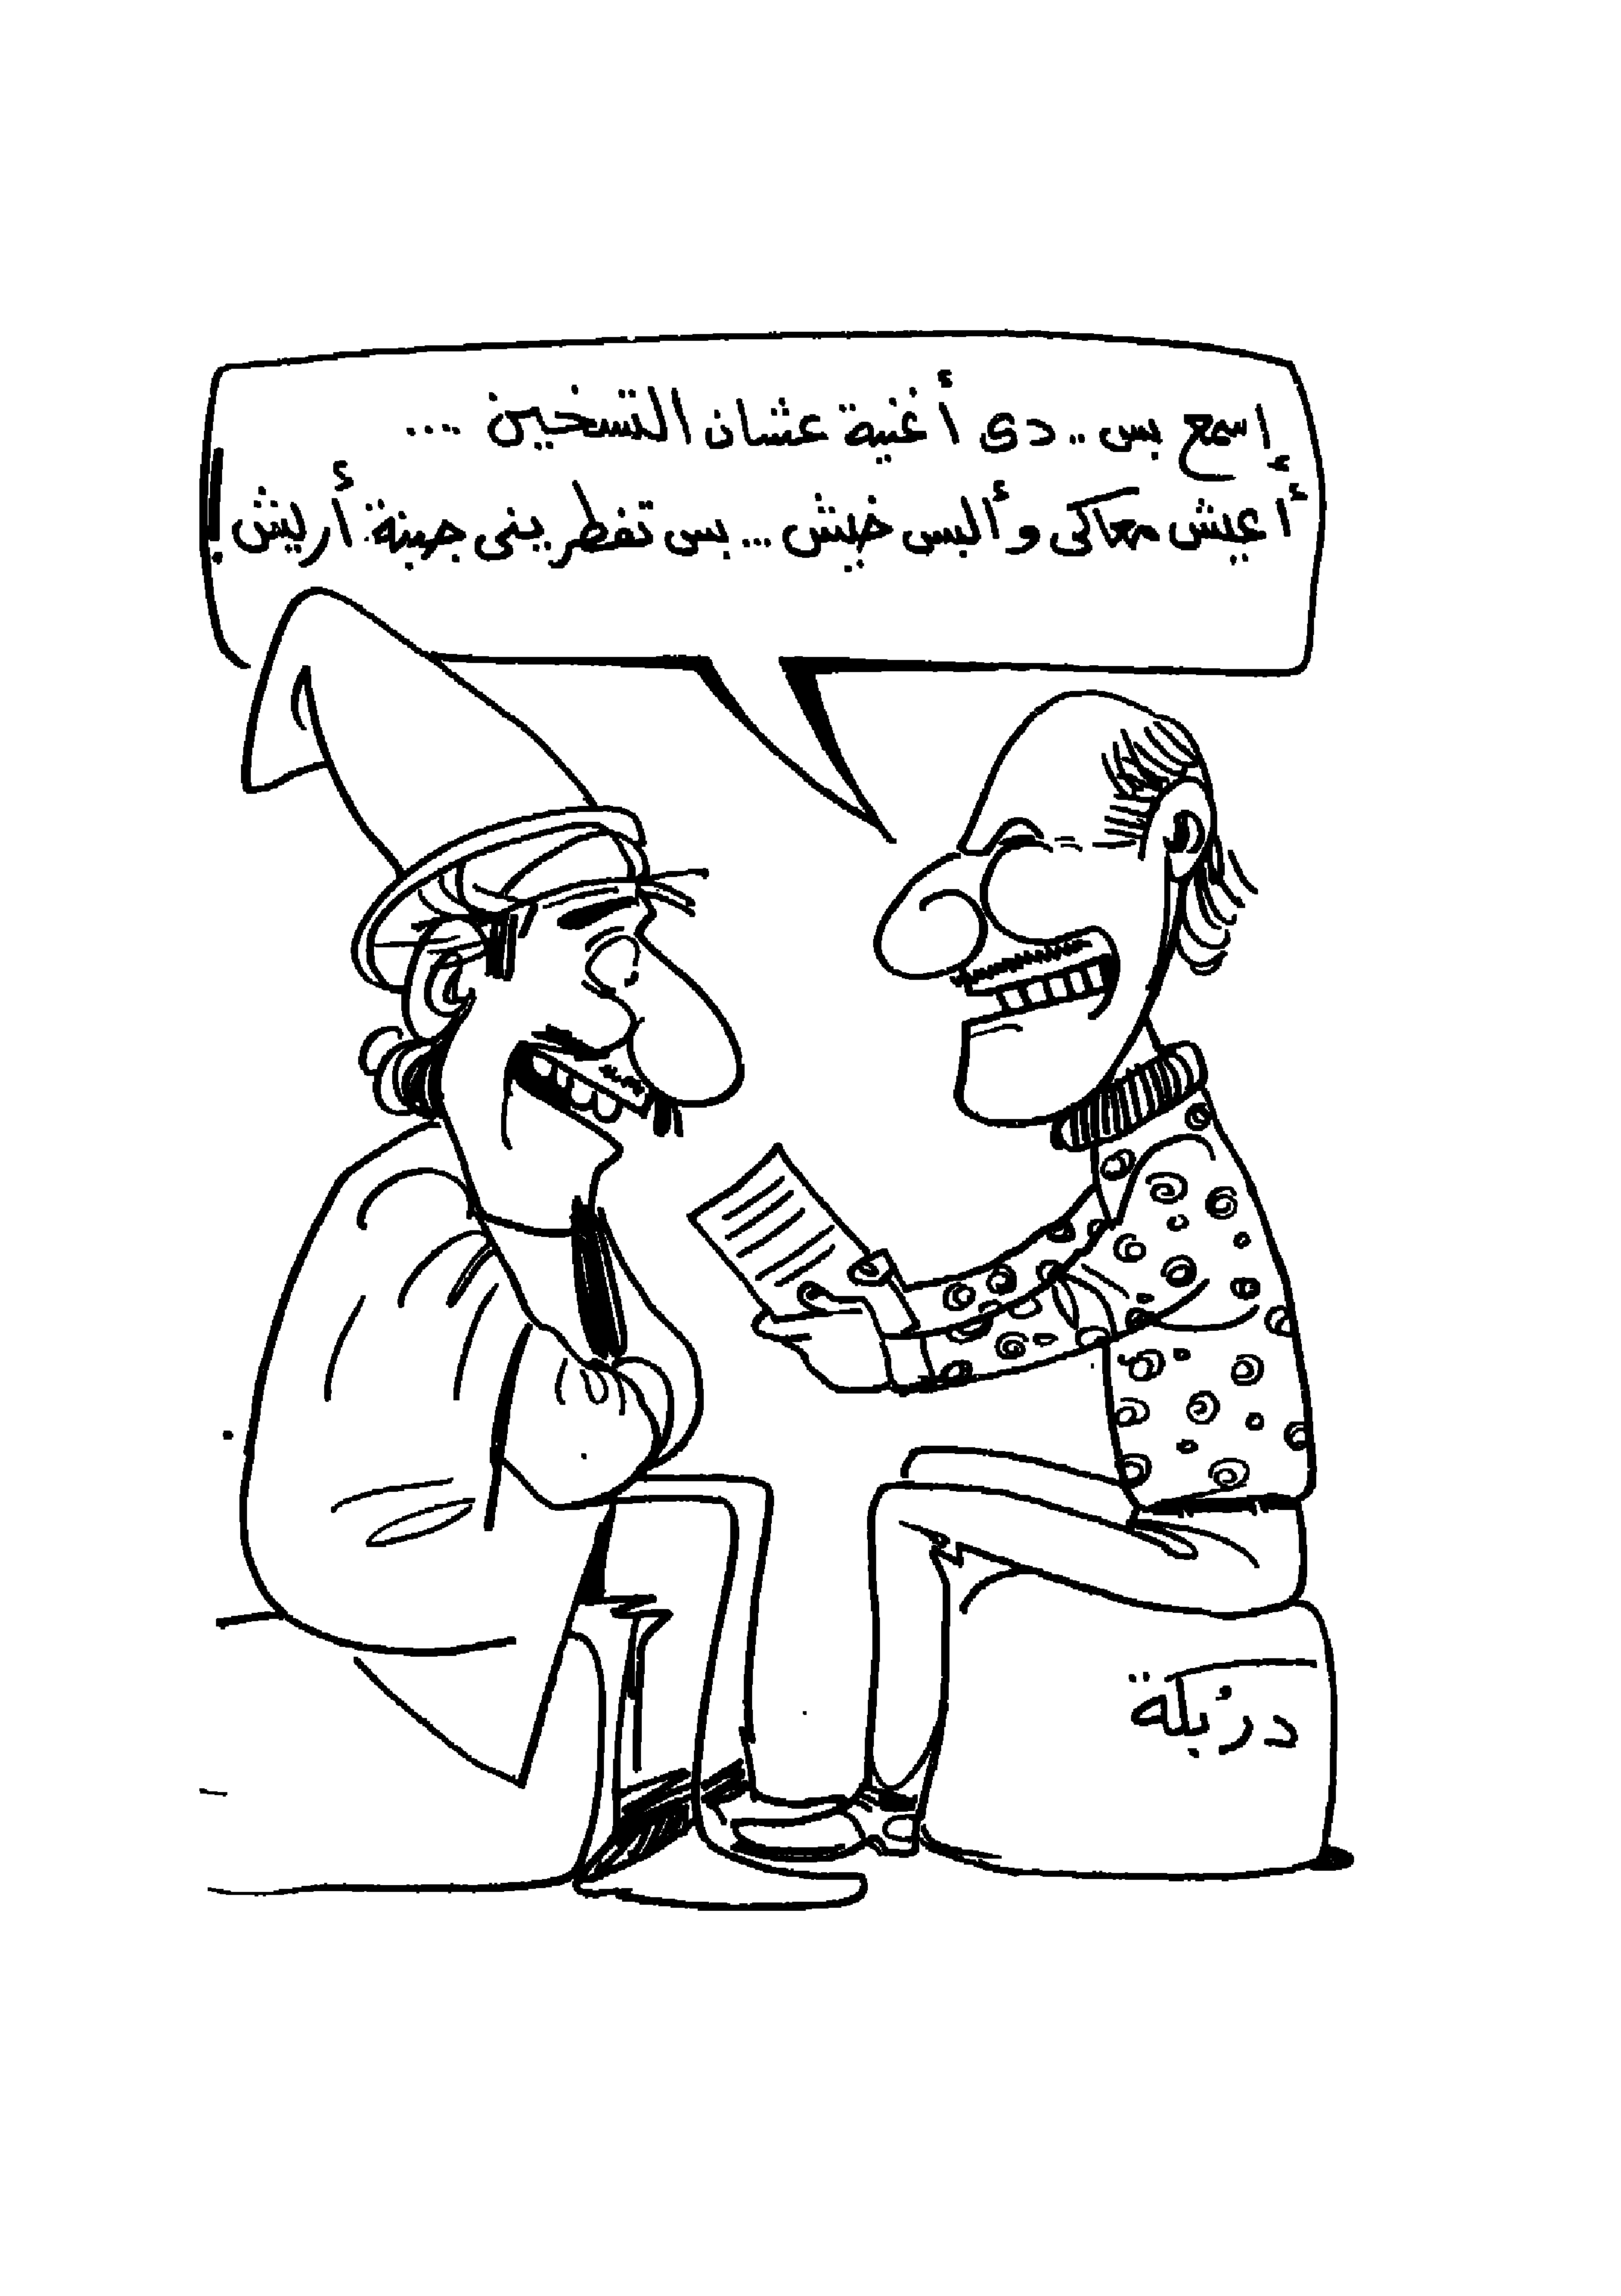 إسمع بس .. دى أغنية عشان التسخين ....
أعيش معاكى وألبس خيش ... بس تفطرينى جبنة أريش !
دربلة